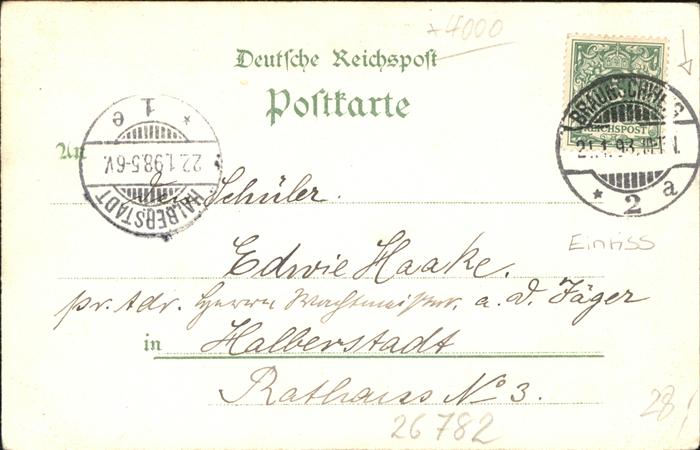 *4000
Deutsche Reichspost
Postkarte
REICHSPOST
BRAUNSCHWEIG
21.1.98
* 2 a
* 1 e
22.1.98.5-6V.
HALBERSTADT
An
den Schüler.
Einriss
Edwie Haake.
pr. Adr. Herrn Wachtmeister. a. D. Jäger
in Halberstadt
Rathaus No 3.
26782
28,